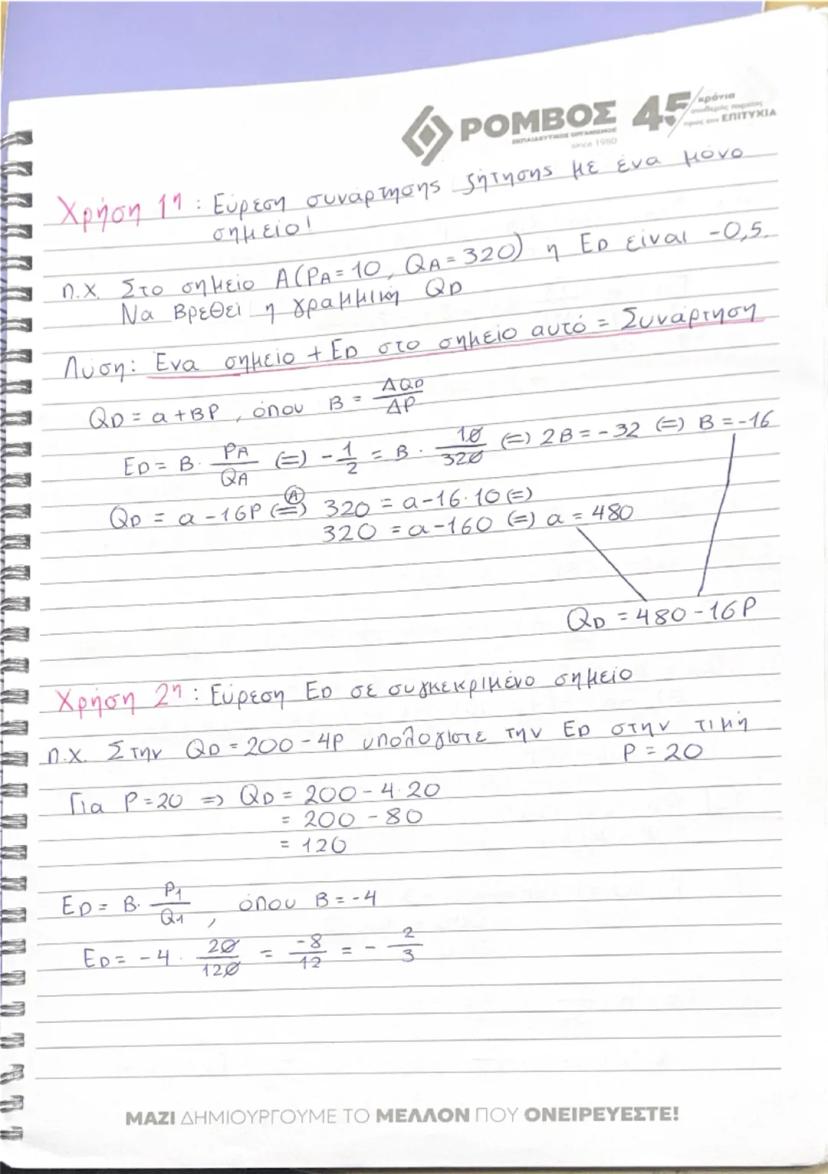 ΡΟΜΒΟΣ 45 χρόνια
ΕΚΠΑΙΔΕΥΤΙΚΟΣ ΟΡΓΑΝΙΣΜΟΣ προς την ΕΠΙΤΥΧΙΑ
since 1980
Χρήση 1η : Εύρεση συνάρτησης ζήτησης με ένα μόνο
σημείο!
π.χ. Στο σημείο Α(PA = 10, QA = 320) η ED είναι -0,5.
Να βρεθεί η γραμμική QD
Λύση: Ένα σημείο + ED στο σημείο αυτό = Συνάρτηση
QD = α + ΒΡ, όπου Β = ΔQD/ΔP
ED = B · PA/QA (=) -1/2 = B · 10/320 (=) 2B = -32 (=) B = -16
QD = α - 16P (=) (A) 320 = α - 16·10 (=)
320 = α - 160 (=) α = 480
QD = 480 - 16P
Χρήση 2η : Εύρεση ED σε συγκεκριμένο σημείο
π.χ. Στην QD = 200 - 4P υπολογίστε την ED στην τιμή
P = 20
Για P = 20 => QD = 200 - 4·20
= 200 - 80
= 120
ED = B · P1/Q1, όπου B = -4
ED = -4 · 20/120 = -8/12 = - 2/3
ΜΑΖΙ ΔΗΜΙΟΥΡΓΟΥΜΕ ΤΟ ΜΕΛΛΟΝ ΠΟΥ ΟΝΕΙΡΕΥΕΣΤΕ!